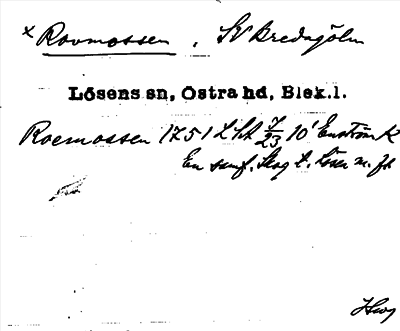 x Rovmossen, SV Bredagöln
Lösens sn, Östra hd, Blek.l.
Roemossen 1751 LSA 7/23 10' Enström K
En samf. Skog t. Lösen m. fl
Hwg